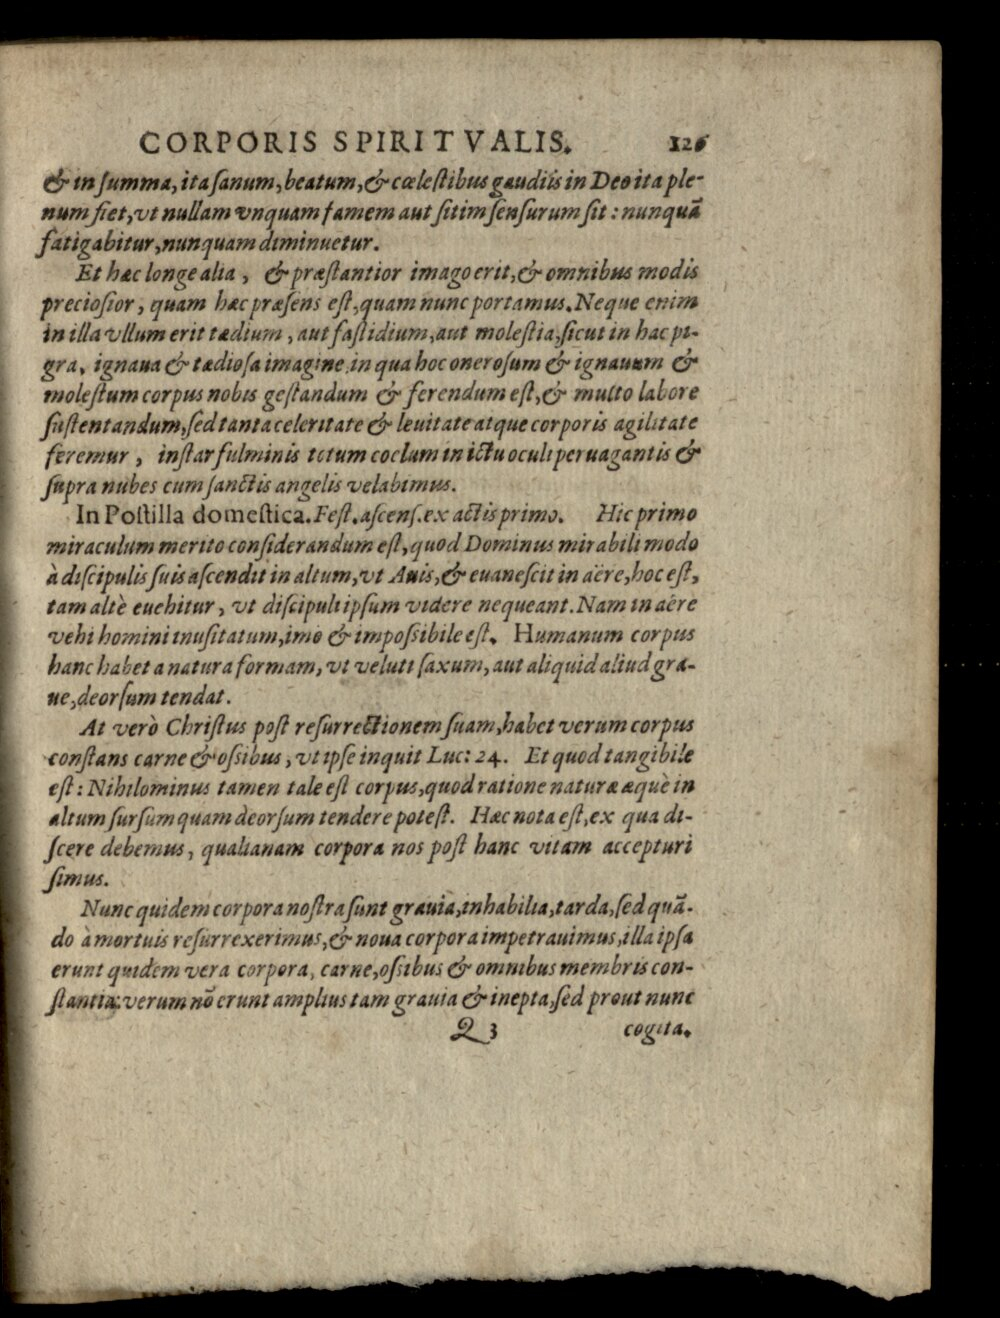 CORPORIS SPIRITVALIS. 126
& in ſumma, ita ſanum, beatum, & cœleſtibus gaudiis in Deo ita ple-
num fiet, vt nullam vnquam famem aut ſitim ſenſurum ſit : nunquã
fatigabitur, nunquam diminuetur.
Et hæc longe alia, & præſtantior imago erit, & omnibus modis
precioſior, quam hæc præſens eſt, quam nunc portamus. Neque enim
in illa vllum erit tædium, aut faſtidium, aut moleſtia, ſicut in hac pi-
gra, ignaua & tædioſa imagine in qua hoc oneroſum & ignauum &
moleſtum corpus nobis geſtandum & ferendum eſt, & multo labore
ſuſtentandum, ſed tanta celeritate & leuitate atque corporis agilitate
feremur, inſtar fulminis totum coelum in ictu oculi peruagantis &
ſupra nubes cum ſanctis angelis velabimus.
In Poſtilla domeſtica. Feſt. aſcenſ. ex actis primo. Hic primo
miraculum merito conſiderandum eſt, quod Dominus mirabili modo
à diſcipulis ſuis aſcendit in altum, vt Auis, & euaneſcit in aëre, hoc eſt,
tam altè euehitur, vt diſcipuli ipſum videre nequeant. Nam in aëre
vehi homini inuſitatum, imo & impoſsibile eſt. Humanum corpus
hanc habet a natura formam, vt veluti ſaxum, aut aliquid aliud gra-
ue, deorſum tendat.
At verò Chriſtus poſt reſurrectionem ſuam, habet verum corpus
conſtans carne & oſsibus, vt ipſe inquit Luc: 24. Et quod tangibile
eſt : Nihilominus tamen tale eſt corpus, quod ratione naturæ æquè in
altum ſurſum quam deorſum tendere poteſt. Hæc nota eſt, ex qua di-
ſcere debemus, qualianam corpora nos poſt hanc vitam accepturi
ſimus.
Nunc quidem corpora noſtra ſunt grauia, inhabilia, tarda, ſed quã-
do à mortuis reſurrexerimus, & noua corpora impetrauimus, illa ipſa
erunt quidem vera corpora, carne, oſsibus & omnibus membris con-
ſtantia: verum nõ erunt amplius tam grauia & inepta, ſed prout nunc
Q 3 cogita.